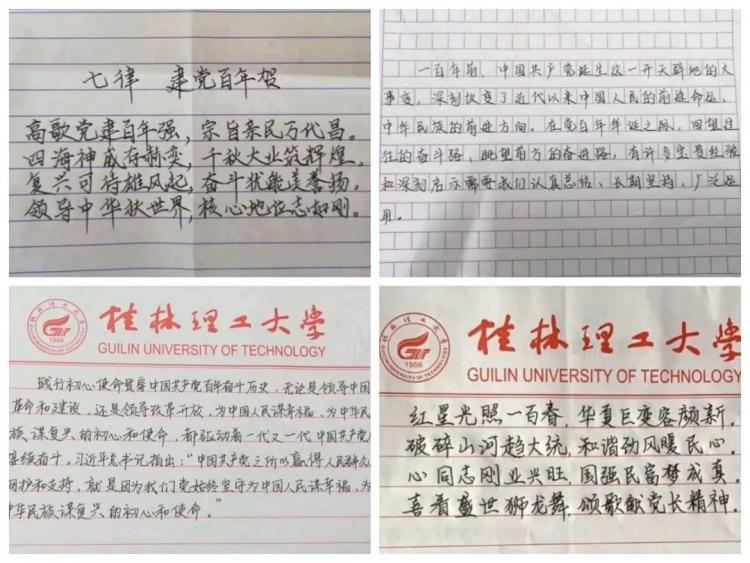 七律 建党百年贺
高歌党建百年强，宗旨亲民万代昌。
四海神威存赫奕，千秋大业筑辉煌。
复兴可待雄风起，奋斗犹能美誉扬。
领导中华状世界，核心地位志如刚。
一百年前，中国共产党诞生这一开天辟地的大
事变，深刻改变了近代以来中国人民的前途命运、
中华民族的前进方向。在党百年华诞之际，回望过
往的奋斗路，眺望前方的奋进路，有许多宝贵经验
和深刻启示需要我们认真总结、长期坚持、广泛运
用。
桂林理工大学
GUILIN UNIVERSITY OF TECHNOLOGY
1956
践行初心使命贯穿中国共产党百年奋斗历史，无论是领导中国
革命和建设，还是领导改革开放，为中国人民谋幸福、为中华民
族谋复兴的初心和使命，都驱动着一代又一代中国共产党
接续奋斗。习近平总书记指出：“中国共产党之所以赢得人民群众
拥护和支持，就是因为我们党始终坚守为中国人民谋幸福、为
中华民族谋复兴的初心和使命。”
桂林理工大学
GUILIN UNIVERSITY OF TECHNOLOGY
1956
红星光照一百春，华夏巨变容颜新。
破碎山河趋大统，和谐劲风暖民心。
心同志刚业兴旺，国强民富梦成真。
喜看盛世狮龙舞，颂歌献党长精神。